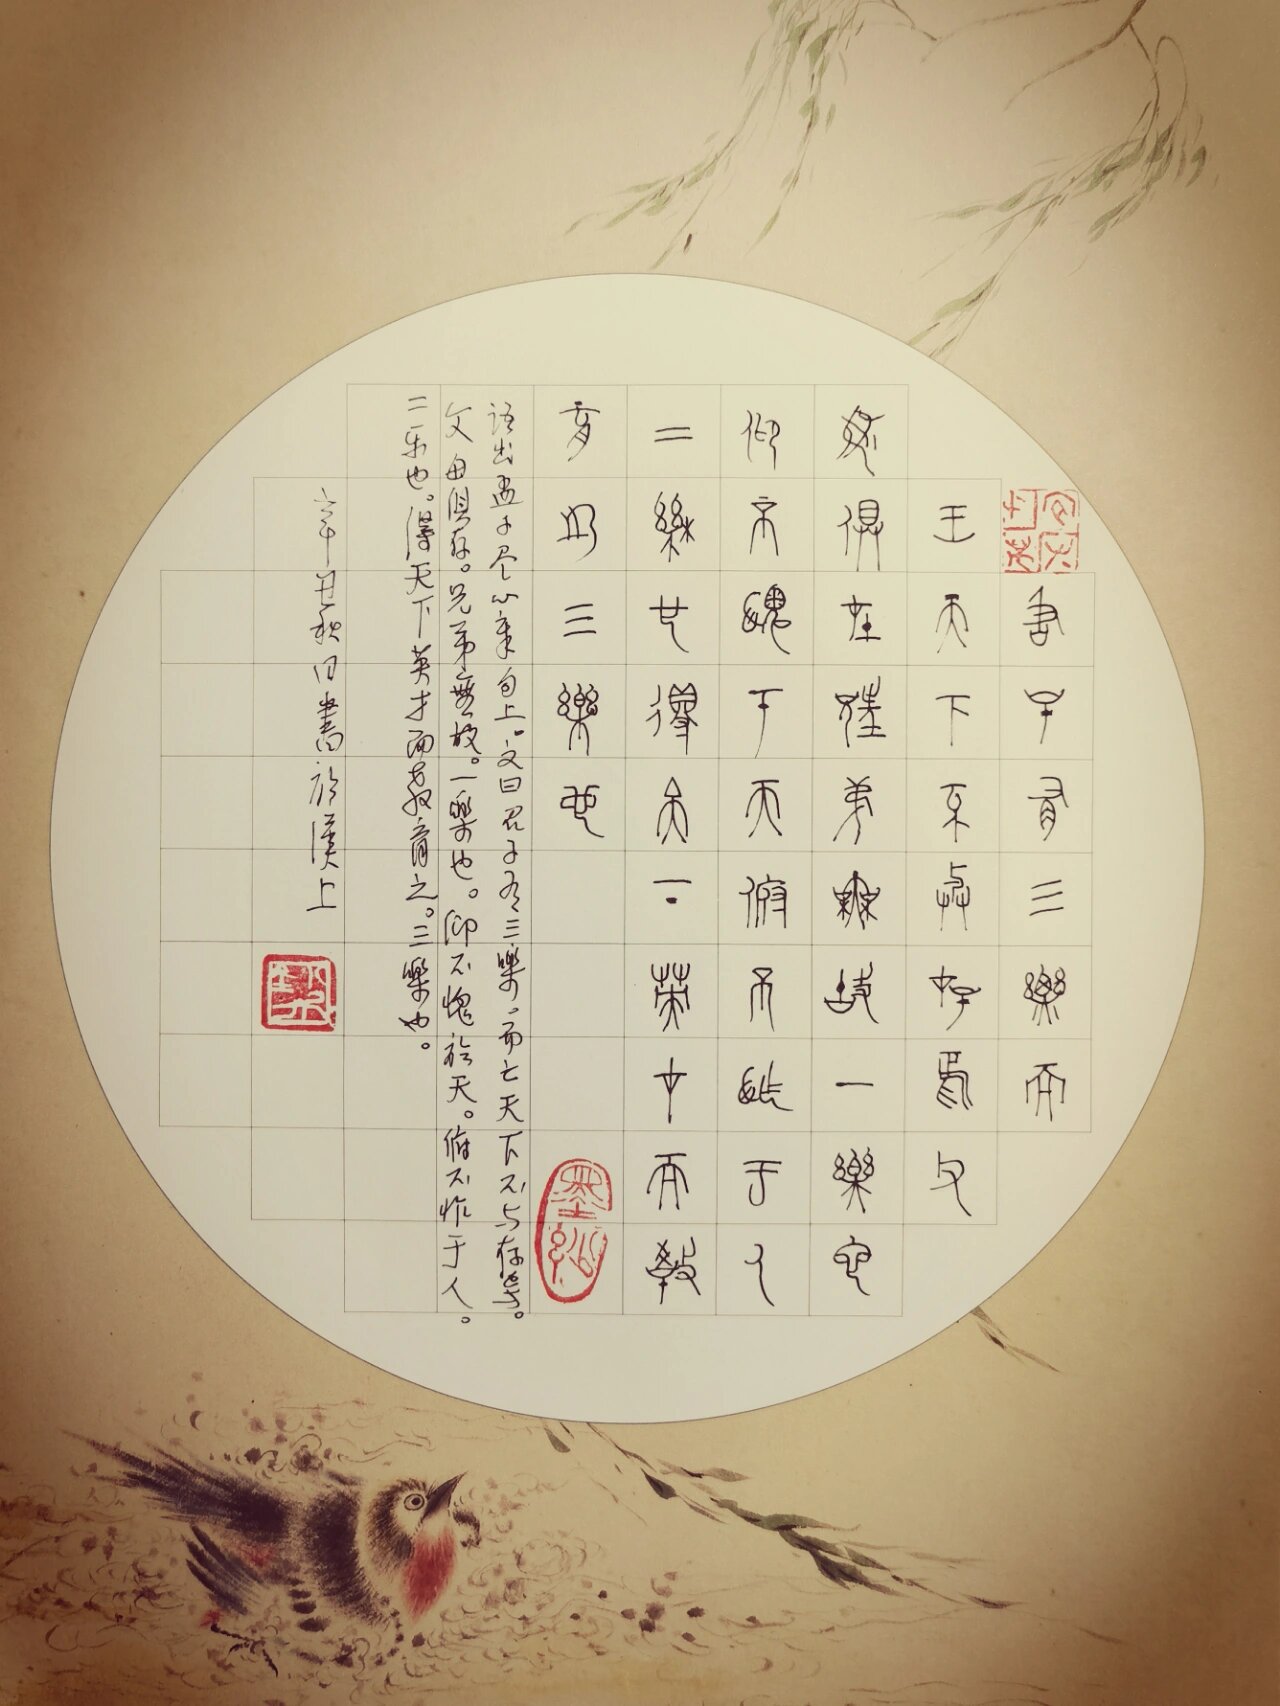 君子有三樂而
王天下不與存焉父
母俱在兄弟無故一樂也
仰不愧于天俯不怍于人
二樂也得天下英才而教
育之三樂也
墨緣
语出孟子尽心章句上。文曰君子有三樂。而王天下不与存焉。
父母俱存。兄弟無故。一樂也。仰不愧於天。俯不怍于人。
二乐也。得天下英才而教育之。三樂也。
辛丑秋日書於漢上